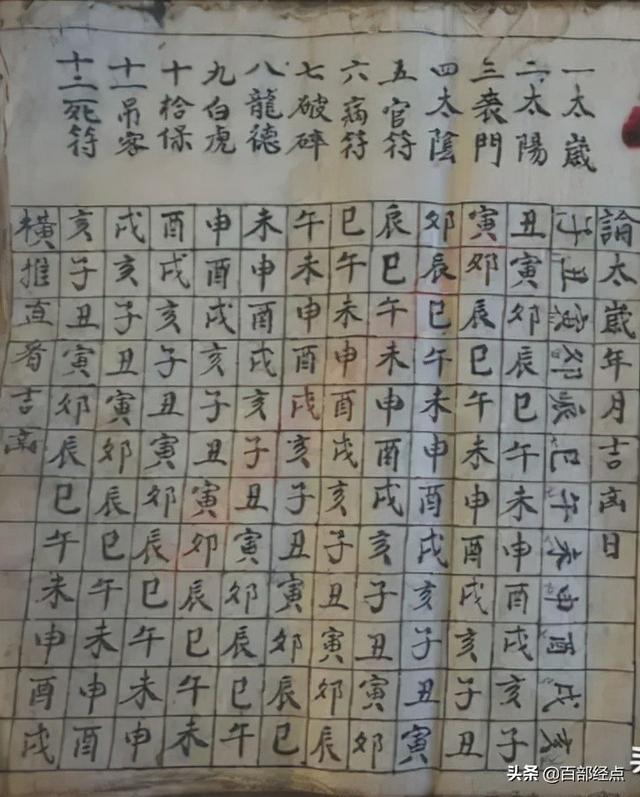 一太歲
二太陽
三喪門
四太陰
五官符
六病符
七破碎
八龍德
九白虎
十拾保
十一吊客
十二死符
論太歲年月吉凶日
子丑寅卯辰巳午未申酉戌亥
丑寅卯辰巳午未申酉戌亥子
寅卯辰巳午未申酉戌亥子丑
卯辰巳午未申酉戌亥子丑寅
辰巳午未申酉戌亥子丑寅卯
巳午未申酉戌亥子丑寅卯辰
午未申酉戌亥子丑寅卯辰巳
未申酉戌亥子丑寅卯辰巳午
申酉戌亥子丑寅卯辰巳午未
酉戌亥子丑寅卯辰巳午未申
戌亥子丑寅卯辰巳午未申酉
亥子丑寅卯辰巳午未申酉戌
橫推直看吉凶
头条 @百部经点